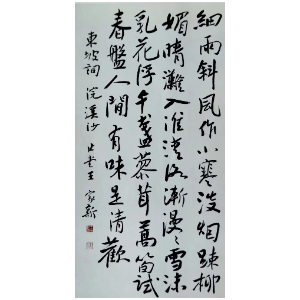 細雨斜風作小寒淡烟疎柳
媚晴灘入淮清洛漸漫々雪沫
乳花浮午盞蓼茸蒿笋試
春盤人間有味是清歡
東坡詞 浣溪沙 王家新